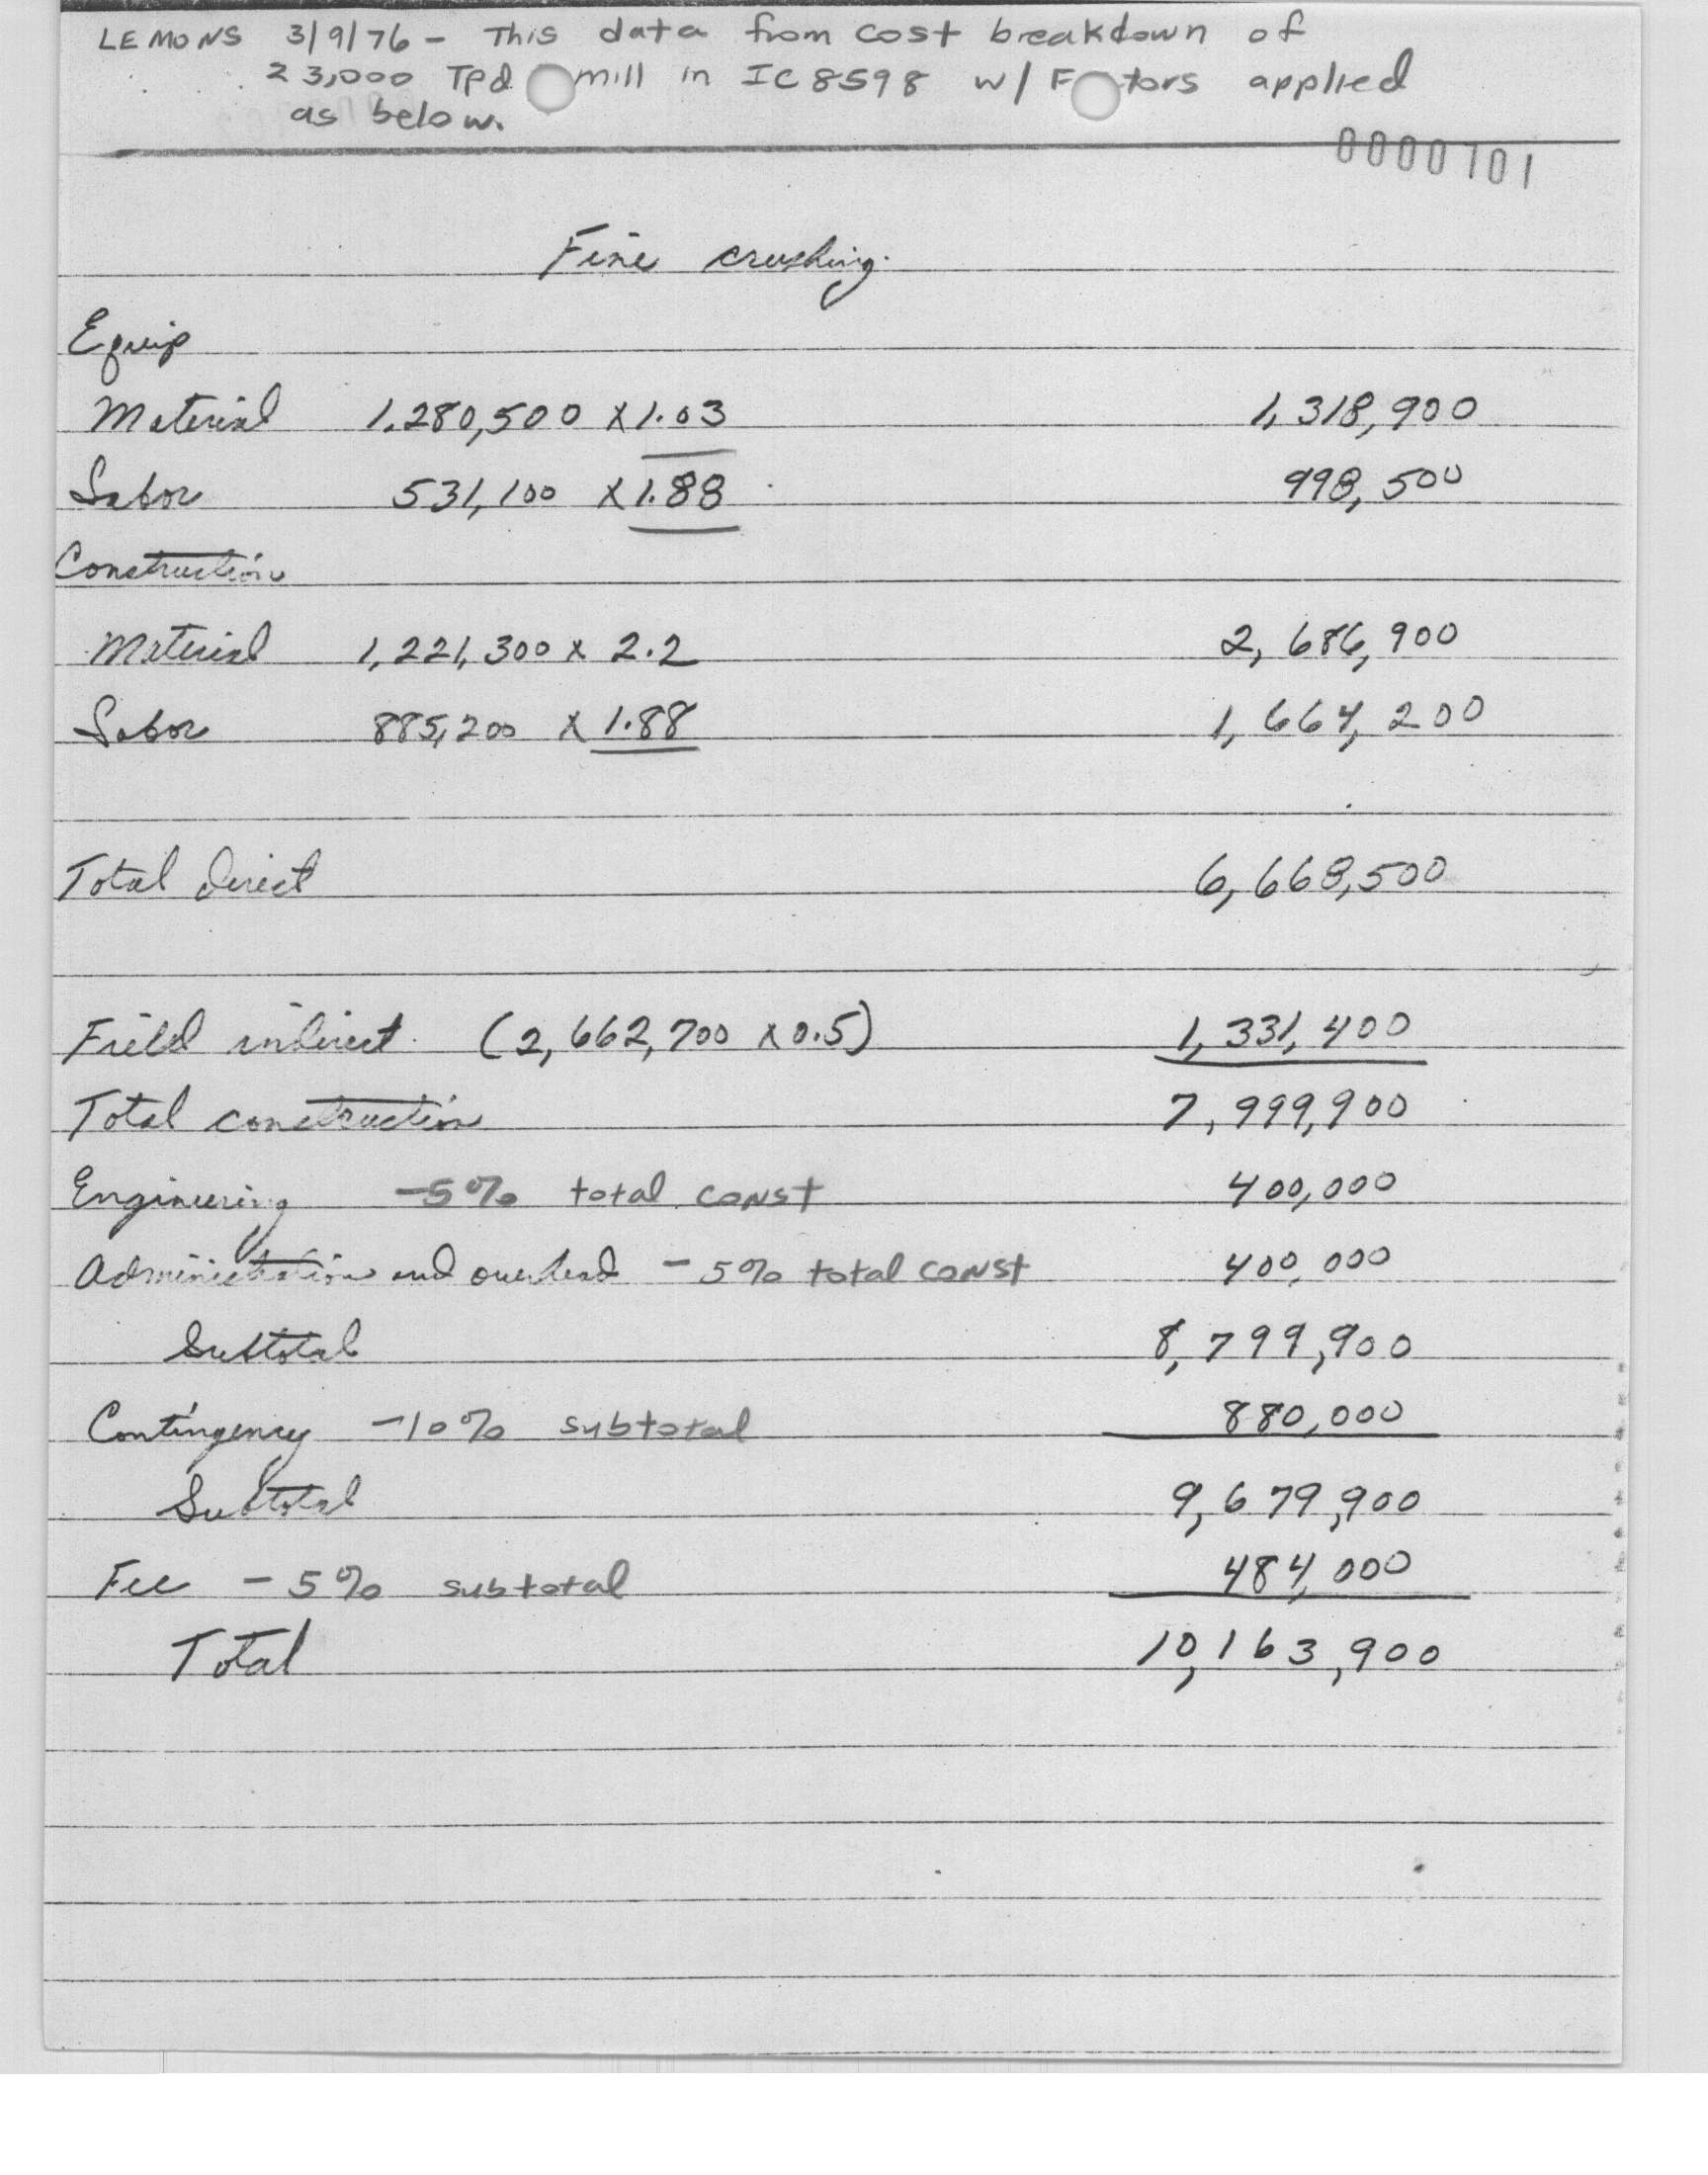 LEMONS 3/9/76 - This data from cost breakdown of
23,000 Tpd mill in IC 8598 w/ F tors applied
as below.
0000101
Fine crushing.
Equip
Material 1,280,500 x 1.03 1,318,900
Labor 531,100 x 1.88 998,500
Construction
Material 1,221,300 x 2.2 2,686,900
Labor 885,200 x 1.88 1,664,200
Total direct 6,668,500
Field indirect. (2,662,700 x 0.5) 1,331,400
Total construction 7,999,900
Engineering -5% total const 400,000
Administration and overhead - 5% total const 400,000
Subtotal 8,799,900
Contingency -10% subtotal 880,000
Subtotal 9,679,900
Fee - 5% subtotal 484,000
Total 10,163,900